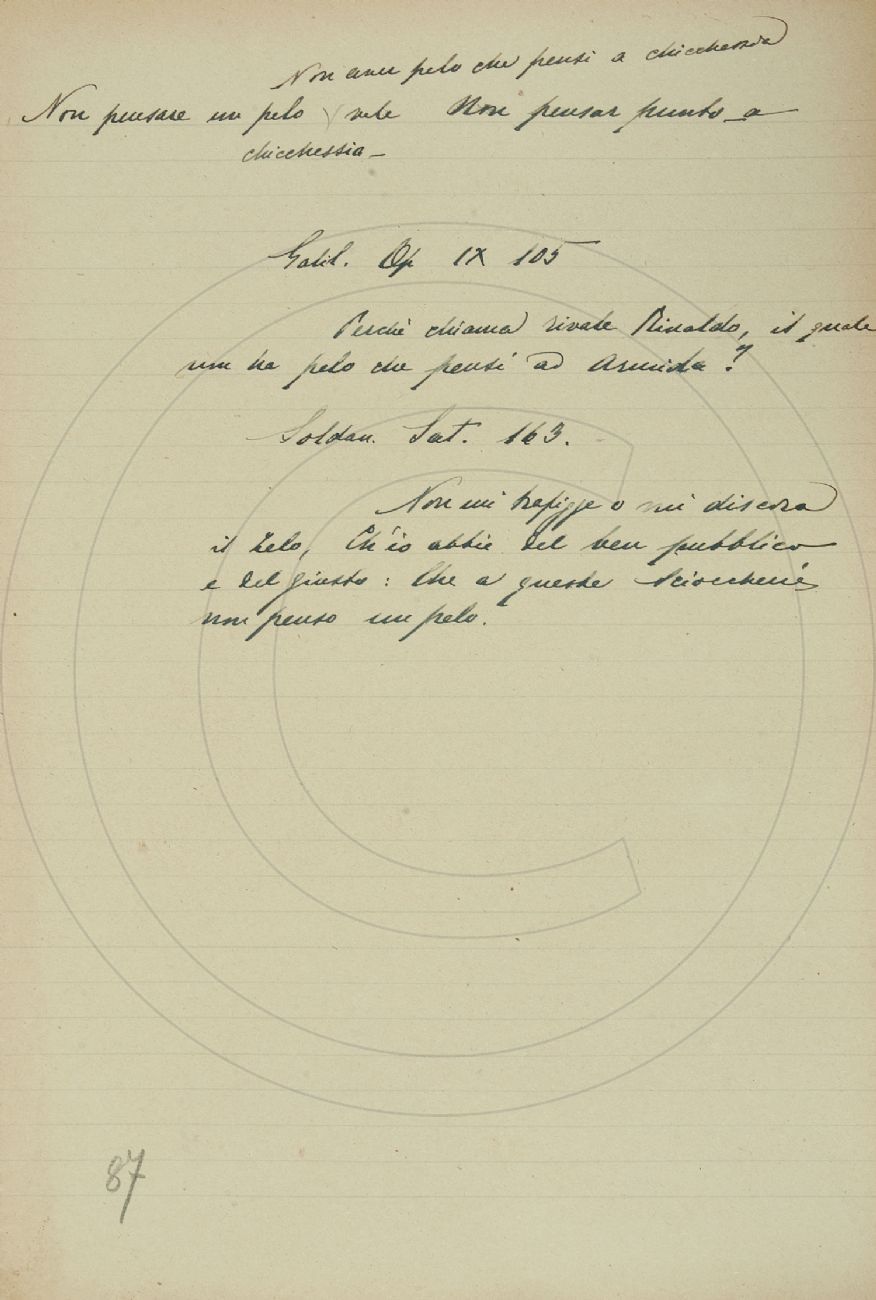 Non aver pelo che pensi a chicchessia
Non pensare un pelo vale Non pensar punto a
chicchessia –
Galil. Op IX 105
Perchè chiama rivale Rinaldo, il quale
non ha pelo che pensi ad Armida?
Soldan. Sat. 163.
Non mi trafigge o mi discora
il zelo, Ch'io abbie del ben pubblico
e del giusto: Che a queste scioccherie
non penso un pelo.
87